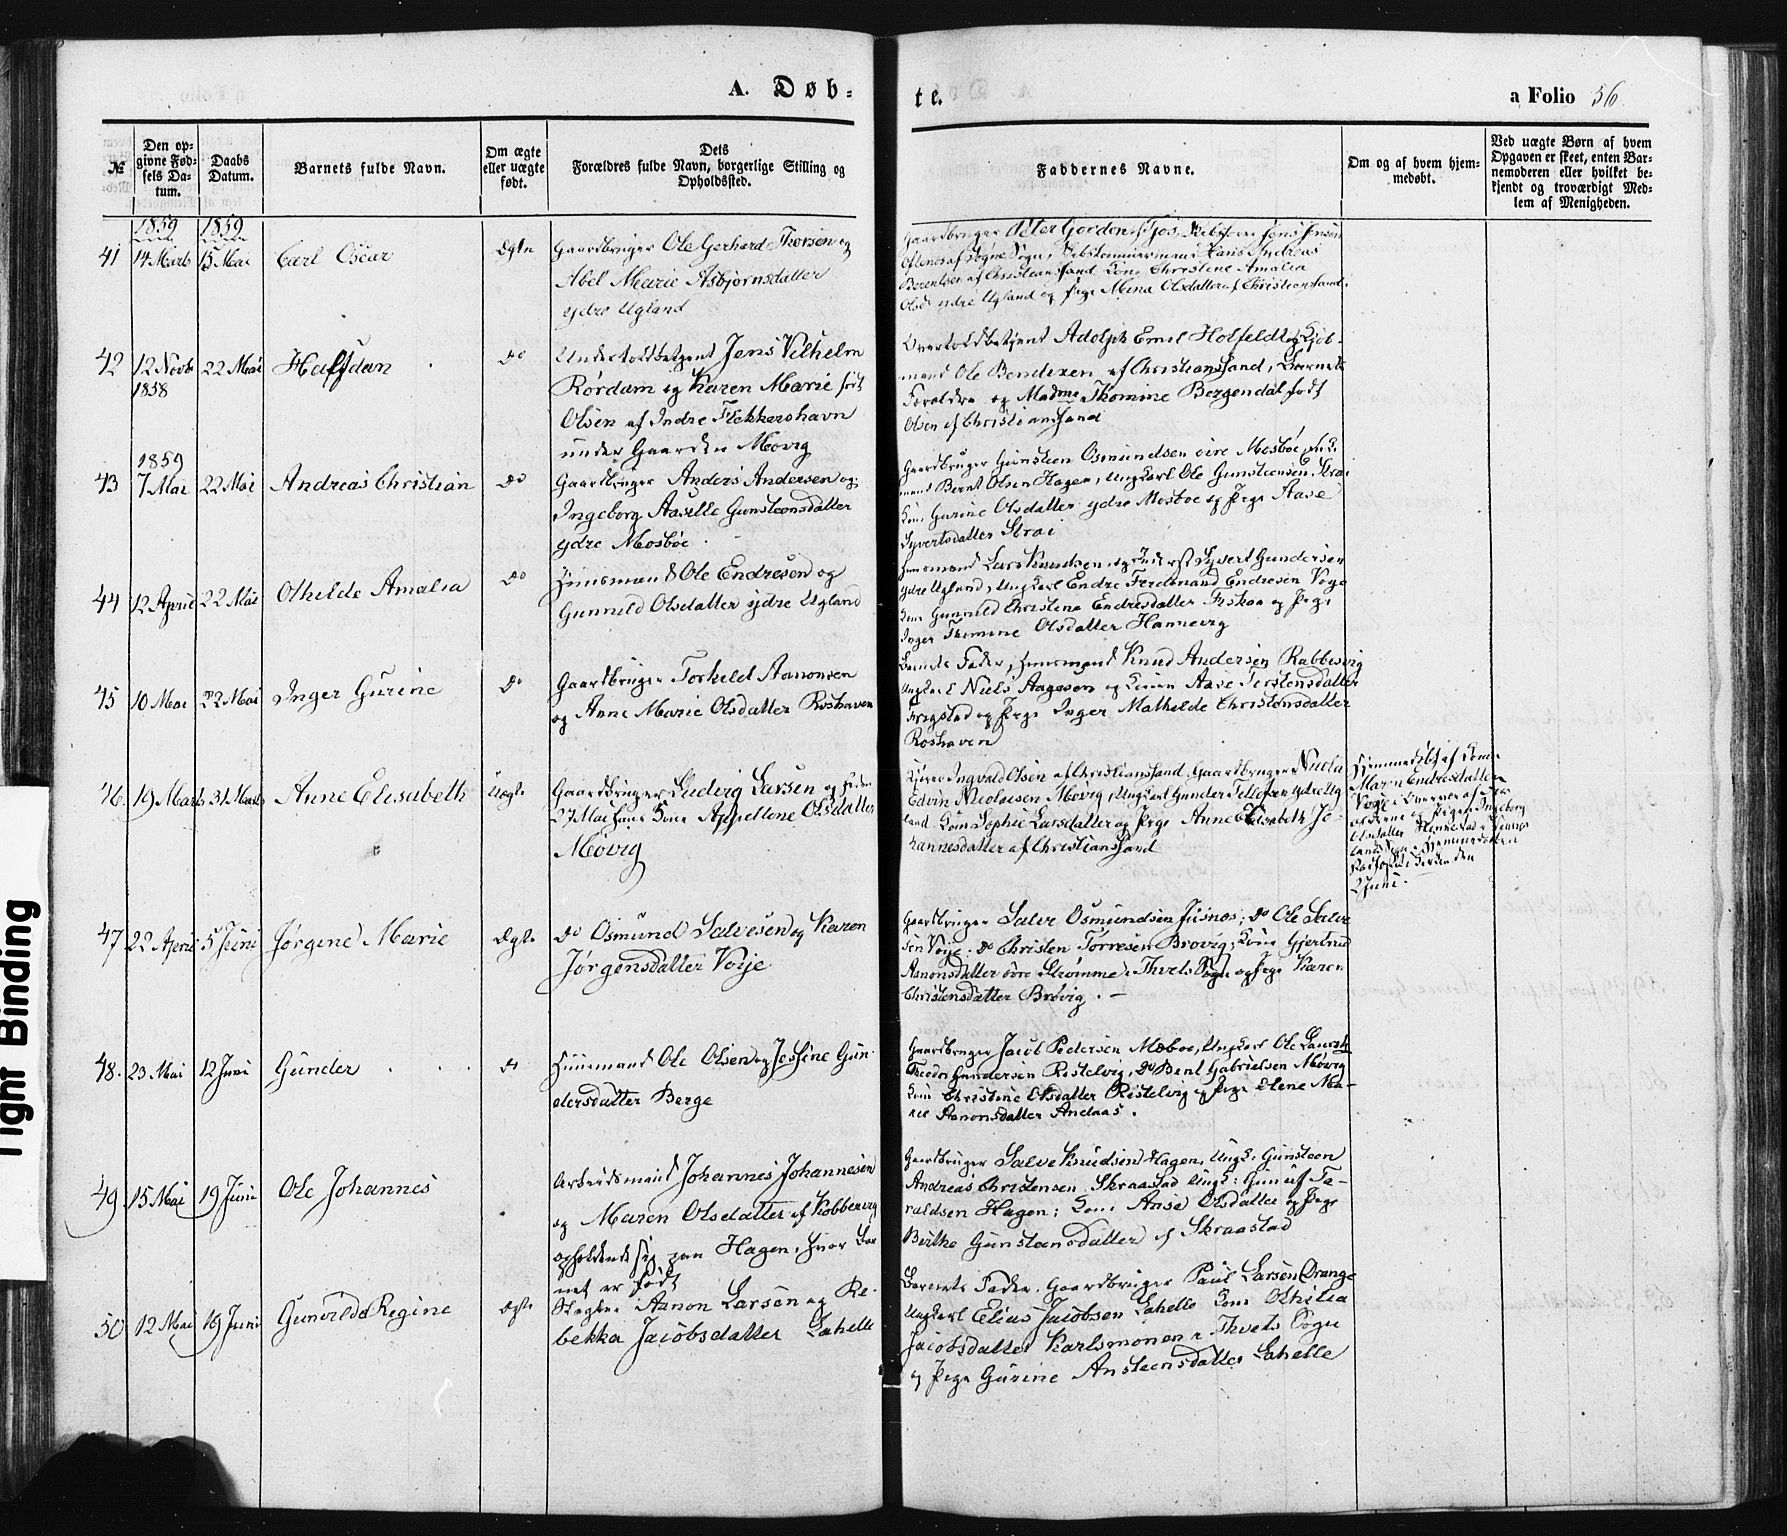 A. Døb-
te.
a Folio 56
№
Den op-
givne Fød-
sels Da-
tum.
Daabs
Datum.
Barnets fulde Navn.
Om ægte
eller uægte
født.
Dets
Forældres fulde Navn, borgerlige Stilling og
Opholdssted.
Faddernes Navne.
Om og af hvem hjem-
medøbt.
Ved uægte Børn af hvem
Opgaven er skeet, enten Bar-
nemoderen eller hvilket be-
kjendt og troværdigt Med-
lem af Menigheden.
1859 1859
41 14 Marts 15 Mai Carl Oscar Ægte Gaardbruger Ole Gerhard Thorsen og
Abel Marie Asbjørnsdatter
ydre Ugland
Gaardbruger Peter Gordon Jens Jensen
af Søgne Sogn, Hans Andreas
Berentsen af Christianssand Kone Christine Amalia
ydre Ugland og Pige Mina Olsdatter af Christianssand.
42 12 Novb 22 Mai Halfdan Do Undertoldbetjent Jens Vilhelm
1858
Rørdam og Karen Marie født
Olsen af Indre Flekkershavn
under Gaarden Møvig
Overtoldbetjent Adolph Emil Holfeldt, Kjøb-
mand Ole Bendixen af Christianssand, Barnets
Forældre og Madme Thomine Bergendal født
Olsen af Christianssand
1859
43 7 Mai 22 Mai Andreas Christian Do Gaardbruger Anders Andersen og
Ingeborg Aasille Gunsteensdatter
ydre Mosbøe
Gaardbruger Gunsteen Osmundsen Mosbøe,
mand Bernt Olsen Hagen, Ungkarl Ole Gunsteensen Strai
Kone Gurine Olsdatter ydre Mosbøe og Pige Aase
Syvertsdatter Strai
44 12 April 22 Mai Othilde Amalia Do Huusmand Ole Endresen og
Gunnild Olsdatter ydre Ugland
Huusmand Lars Knudsen, Syvert Gundersen
ydre Ugland, Ungkarl Endre Ferdinand Endresen Voie
Kone Gunnild Christine Endresdatter Fiskaa og Pige
Inger Thomine Olsdatter Hannevig
45 10 Mai 22 Mai Inger Gurine Do Gaardbruger Torkild Aanonsen
og Anne Marie Olsdatter Roshaven
Barnets Fader, Huusmand Knud Andersen Rabbersvig
Ungkarl Niels Aagesen og Konen Aase Terstensdatter
Frigstad og Pige Inger Mathilde Christensdatter
Roshaven
46. 19 Marts 31 Marts Anne Elisabeth Uægte Gaardbruger Ludvig Larsen og
27 Mai hans Kone Appellone Olsdatter
Møvig
Ingvald Olsen af Christianssand, Gaardbruger Nicolai
Edvin Nicolaisen Møvig, Ungkarl Gunder Tellefsen ydre Ug-
land. Kone Sophie Larsdatter og Pige Anne Elisabeth Jo-
hannesdatter af Christianssand
Hjemmedøbt af Kone
Maren Endresdatter
Voie
og Pigen Ingeborg
Olsdatter
2 Juni.
47 22 April 5 Juni Jørgine Marie Ægte Do Osmund Salvesen og Karen
Jørgensdatter Voije
Gaardbruger Salve Osmundsen Jusnes; Do Ole Salve-
sen Voije. Do Christen Torresen Brøvig; Kone Gjertrud
Aanonsdatter øvre Strømme i Thveits Sogn og Pige Karen
Christensdatter Brøvig. —
48. 23 Mai 12 Juni Gunder Do Huusmand Ole Olsen og Jesfine Gun-
dersdatter Berge
Gaardbruger Jacob Pedersen Mæboe, Ungkarl Ole Laurits
Theodor Gundersen Rostelvig, Do Bent Gabrielsen Møvig
Kone Christine Olsdatter Røstelvig og Pige Elene Ma-
rie Aanonsdatter Andaas.
49 15 Mai 19 Juni Ole Johannes Arbeidsmand Johannes Johannesen
og Maren Olsdatter af Kobbervig
opholdende sig paa Hagen, hvor Bar-
net er født
Gaardbruger Salve Knudsen Hagen, Ungk: Gunsteen
Andreas Christensen Skraastad Ungk: Gunuf Ta-
raldsen Hagen; Kone Anne Olsdatter og Pige
Birthe Gunsteensdatter af Skraastad
50 12 Mai 19 Juni Gunvilda Regine Ægte Aanon Larsen og Re-
bekka Jacobsdatter Lahelle
Barnets Fader, Gaardbruger Paul Larsen Drange
Ungkarl Elias Jacobsen Lahelle Kone Othilia
Jacobsdatter Karlsmonen i Thveits Sogn
og Pige Gurine Ansteensdatter Lahelle
Tight Binding